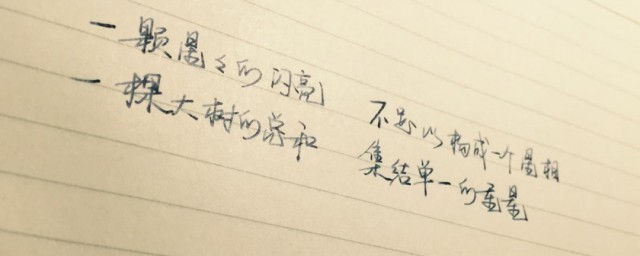 一颗星々的闪亮
一棵大树的总和
不足以构成一个星相
集结单一的星星